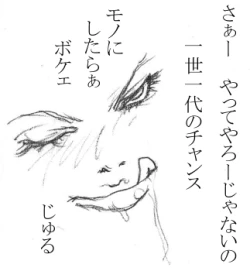 さぁー　やってやろーじゃないの
一世一代のチャンス
モノに
したらぁ
ボケェ
じゅる